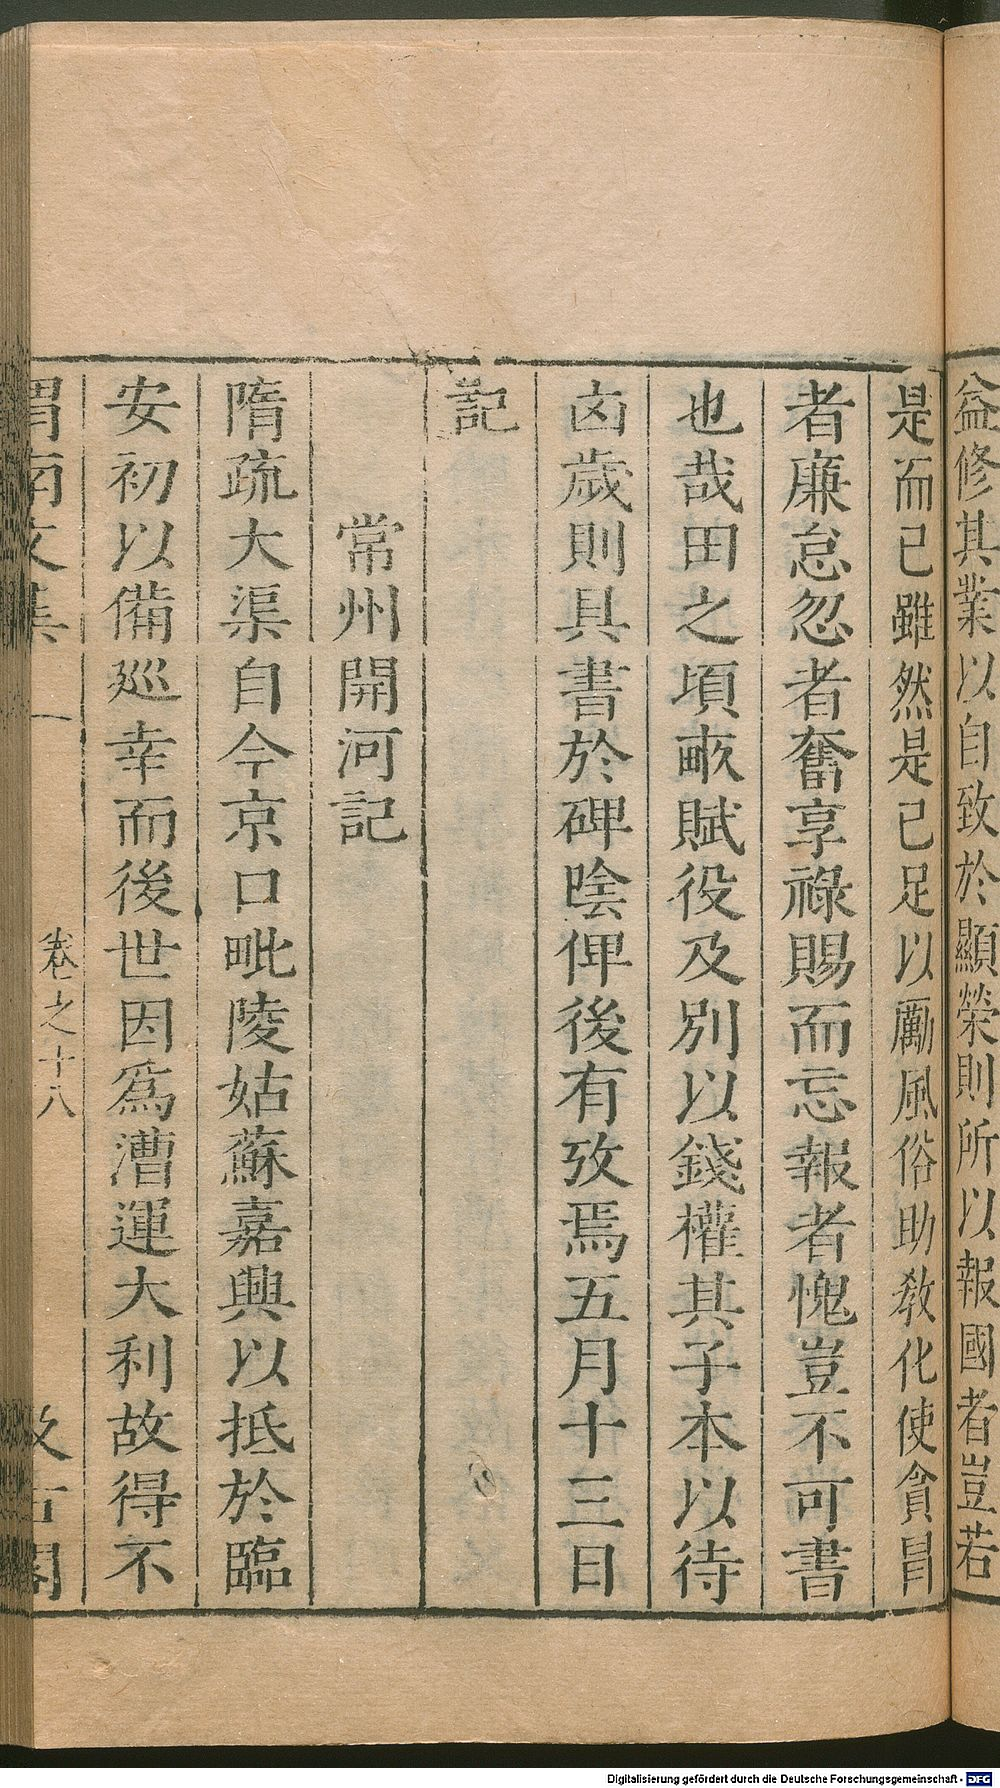 益修其業以自致於顯榮則所以報國者豈若
是而已雖然是已足以勵風俗助教化使貪冒
者廉怠忽者奮享祿賜而忘報者愧豈不可書
也哉田之頃畝賦役及別以錢權其子本以待
凶歲則具書於碑陰俾後有攷焉五月十三日
記
常州開河記
隋疏大渠自今京口毗陵姑蘇嘉興以抵於臨
安初以備廵幸而後世因爲漕運大利故得不
渭南文集 卷之十八 汲古閣
Digitalisierung gefördert durch die Deutsche Forschungsgemeinschaft - DFG